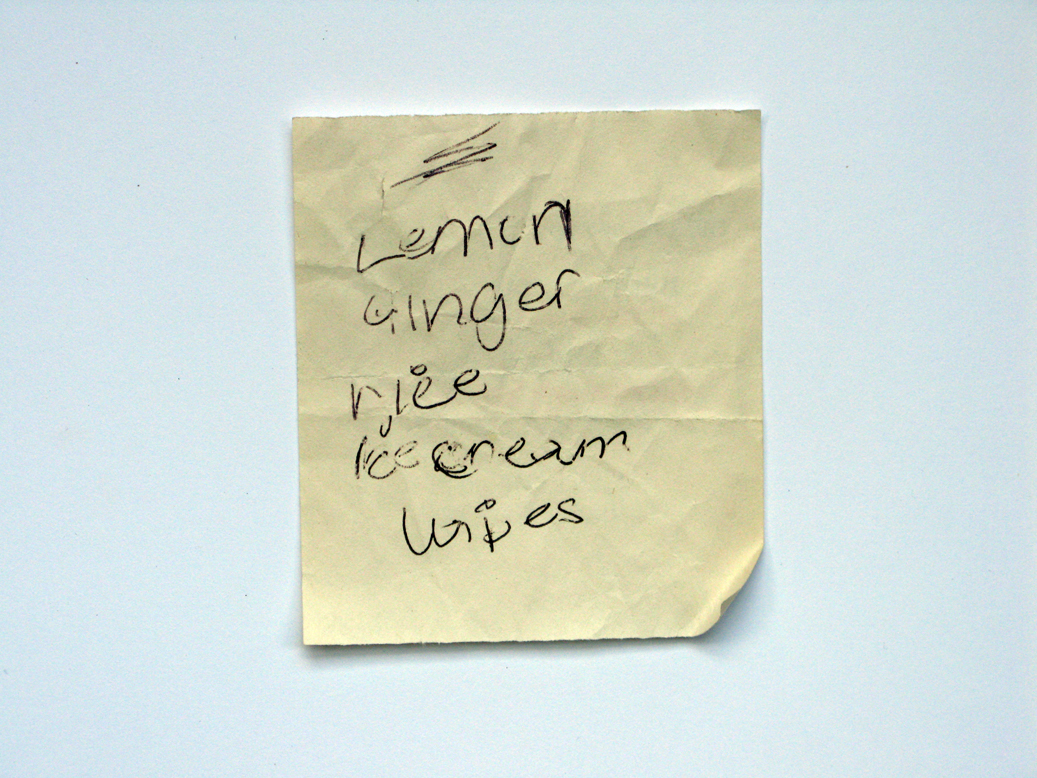 Lemon
Ginger
rice
Icecream
Wipes